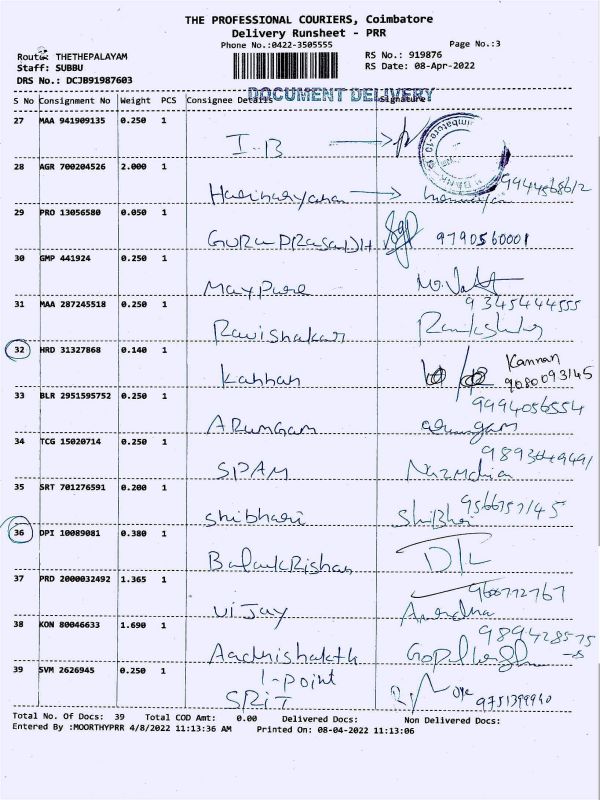 THE PROFESSIONAL COURIERS, Coimbatore
Delivery Runsheet - PRR
Phone No.:0422-3505555 Page No.:3
Route: THETHEPALAYAM RS No.: 919876
Staff: SUBBU RS Date: 08-Apr-2022
DRS No.: DCJB91987603
DOCUMENT DELIVERY
S No Consignment No Weight PCS Consignee Details Signature
27 MAA 941909135 0.250 1
I-B
28 AGR 700204526 2.000 1
Hariharyahan 9944568612
29 PRO 13056580 0.050 1
GURU PRASADH 9790560001
30 GMP 441924 0.250 1
Maypure
31 MAA 287245518 0.250 1 9345444555
Ravishakar
32 HRD 31327868 0.140 1 Kannan
Kahhah 9080093145
33 BLR 2951595752 0.250 1 9994056554
ARumGam arumgam
34 TCG 15020714 0.250 1
SPAM
35 SRT 701276591 0.200 1
Shibhari Shibhai
36 DPI 10089081 0.380 1
BalaukRishan
37 PRD 2000032492 1.365 1
Vijay
38 KON 80046633 1.690 1
Aadhishakth
39 SVM 2626945 0.250 1 1-Point
SRIT 9751399940
Total No. Of Docs: 39 Total COD Amt: 0.00 Delivered Docs: Non Delivered Docs:
Entered By :MOORTHYPRR 4/8/2022 11:13:36 AM Printed On: 08-04-2022 11:13:06